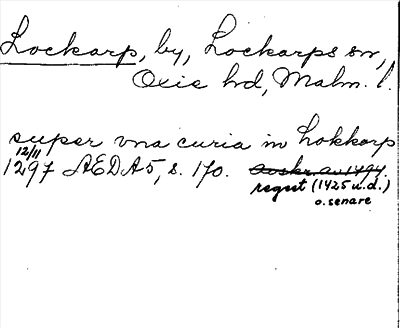 Lockarp, by, Lockarps sn,
Oxie hd, Malm. l.
super vna curia in Lokkorp
12/11
1297 AEDA5, s. 170. Avskr. av 1494.
regest (1425 u.d.)
o. senare